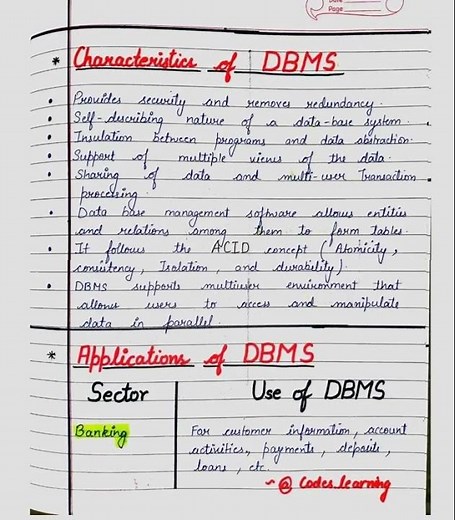 Date
Page
* Characteristics of DBMS
• Provides security and removes redundancy.
• Self-describing nature of a data-base system.
• Insulation between programs and data abstraction.
• Support of multiple views of the data.
• Sharing of data and multi-user Transaction
processing.
• Data base management software allows entities
and relations among them to form tables.
• It follows the ACID concept (Atomicity,
consistency, Isolation, and durability).
• DBMS supports multiuser environment that
allows users to access and manipulate
data in parallel.
* Applications of DBMS
Sector Use of DBMS
Banking For customer information, account
activities, payments, deposits,
loans, etc.
~ @ Codes.learning